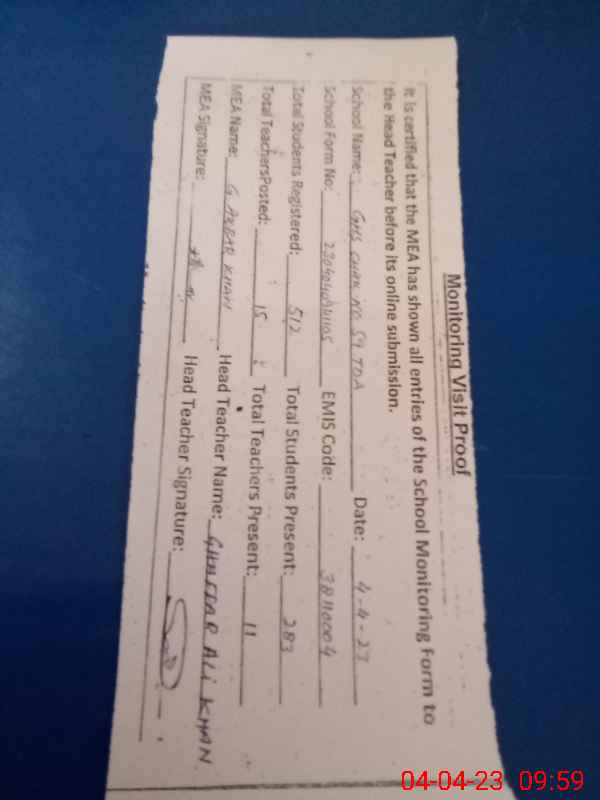 Monitoring Visit Proof
It is certified that the MEA has shown all entries of the School Monitoring Form to
the Head Teacher before its online submission.
School Name: GHS CHAK NO 59 TDA Date: 4-4-23
School Form No: EMIS Code: 38110004
Total Students Registered: 512 Total Students Present: 283
Total TeachersPosted: 15 Total Teachers Present: 11
MEA Name: G. AKBAR KHAN Head Teacher Name: GHAFFAR ALI KHAN
MEA Signature: Head Teacher Signature:
04-04-23 09:59